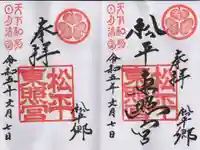 天下和順
日月清明
奉拝
松平
東照宮
令和五年六月七日
松平郷
天下和順
日月清明
松平
東照宮
奉拝
松平
東照宮
令和五年六月七日
松平郷